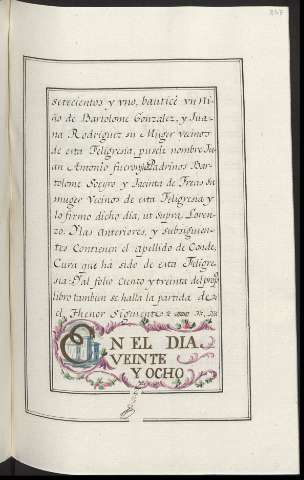 setecientos y vno, bauticé vn Ni-
ño de Bartolome Gonzalez, y Jua-
na Rodriguez su Muger vecinos
de esta Feligresia, pusele nombre Ju-
an Antonio fueron Padrinos Bar-
tolome Soeyro y Jacinta de Freas su
muger Vecinos de esta Feligresia y
lo firmo dicho dia, ut supra Loren-
zo. Y las anteriores, y subsiguien-
tes Contienen el apellido de Conde,
Cura que há sido de esta Feligre-
sia: Y al folio ciento y treinta del propo
libro tambien se halla la partida de
el Thenor Siguiente
EN EL DIA
VEINTE
Y OCHO